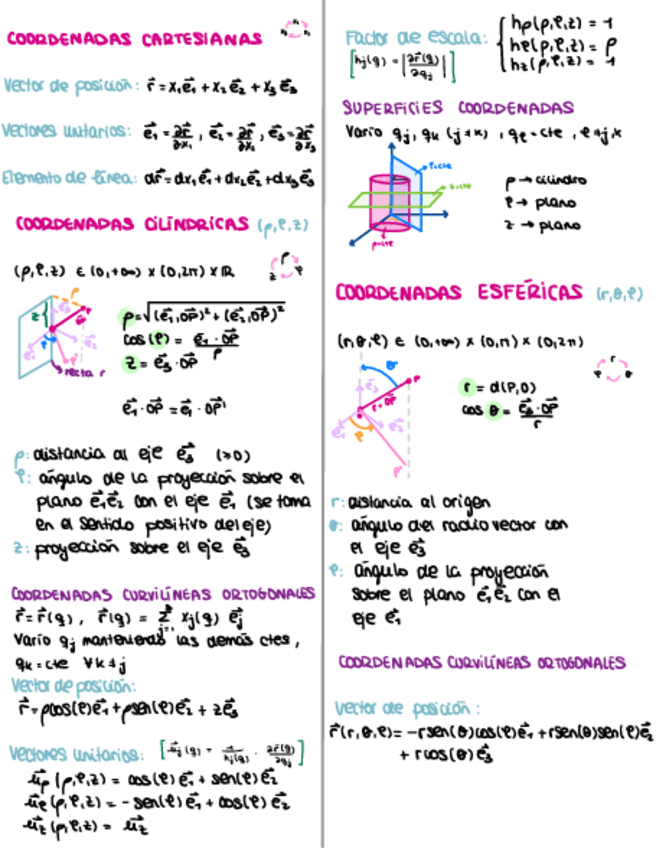 COORDENADAS CARTESIANAS
Vector de posición: r⃗ = x₁e⃗₁ + x₂e⃗₂ + x₃e⃗₃
Vectores unitarios: e⃗₁ = ∂r⃗/∂x₁ , e⃗₂ = ∂r⃗/∂x₂ , e⃗₃ = ∂r⃗/∂x₃
Elemento de línea: dr⃗ = dx₁e⃗₁ + dx₂e⃗₂ + dx₃e⃗₃
COORDENADAS CILÍNDRICAS (ρ,φ,z)
(ρ,φ,z) ∈ (0,+∞) x (0,2π) x ℝ
ρ
z φ
z ρ P
φ e⃗₂
e⃗₁ P'
recta r
ρ = √((e⃗₁·OP⃗)² + (e⃗₂·OP⃗)²)
cos(φ) = e⃗₁·OP⃗/ρ
z = e⃗₃·OP⃗
e⃗₁·OP⃗ = e⃗₁·OP⃗'
ρ: distancia al eje e⃗₃ (≥0)
φ: ángulo de la proyección sobre el
plano e⃗₁e⃗₂ con el eje e⃗₁ (se toma
en el sentido positivo del eje)
z: proyección sobre el eje e⃗₃
COORDENADAS CURVILÍNEAS ORTOGONALES
r⃗ = r⃗(q) , r⃗(q) = Σ xⱼ(q) e⃗ⱼ
Vario qⱼ manteniendo las demás ctes,
qₖ = cte ∀k≠j
Vector de posición:
r⃗ = ρcos(φ)e⃗₁ + ρsen(φ)e⃗₂ + ze⃗₃
Vectores unitarios: [u⃗ⱼ(q) = 1/hⱼ(q) · ∂r⃗(q)/∂qⱼ]
u⃗ρ(ρ,φ,z) = cos(φ)e⃗₁ + sen(φ)e⃗₂
u⃗φ(ρ,φ,z) = -sen(φ)e⃗₁ + cos(φ)e⃗₂
u⃗z(ρ,φ,z) = u⃗z
Factor de escala: { hρ(ρ,φ,z) = 1
[hⱼ(q) = |∂r⃗(q)/∂qⱼ|] hφ(ρ,φ,z) = ρ
hz(ρ,φ,z) = 1
SUPERFICIES COORDENADAS
Vario qⱼ, qₖ (j≠k) , qℓ = cte , ℓ≠j,k
φ=cte
z=cte
ρ=cte
ρ → cilindro
φ → plano
z → plano
COORDENADAS ESFÉRICAS (r,θ,φ)
(r,θ,φ) ∈ (0,+∞) x (0,π) x (0,2π)
r
φ θ
θ
e⃗₃ P
r=OP⃗
e⃗₁ φ e⃗₂
P'
r = d(P,O)
cos θ = e⃗₃·OP⃗/r
r: distancia al origen
θ: ángulo del radio vector con
el eje e⃗₃
φ: ángulo de la proyección
sobre el plano e⃗₁e⃗₂ con el
eje e⃗₁
COORDENADAS CURVILÍNEAS ORTOGONALES
Vector de posición:
r⃗(r,θ,φ) = -rsen(θ)cos(φ)e⃗₁ + rsen(θ)sen(φ)e⃗₂
+ rcos(θ)e⃗₃